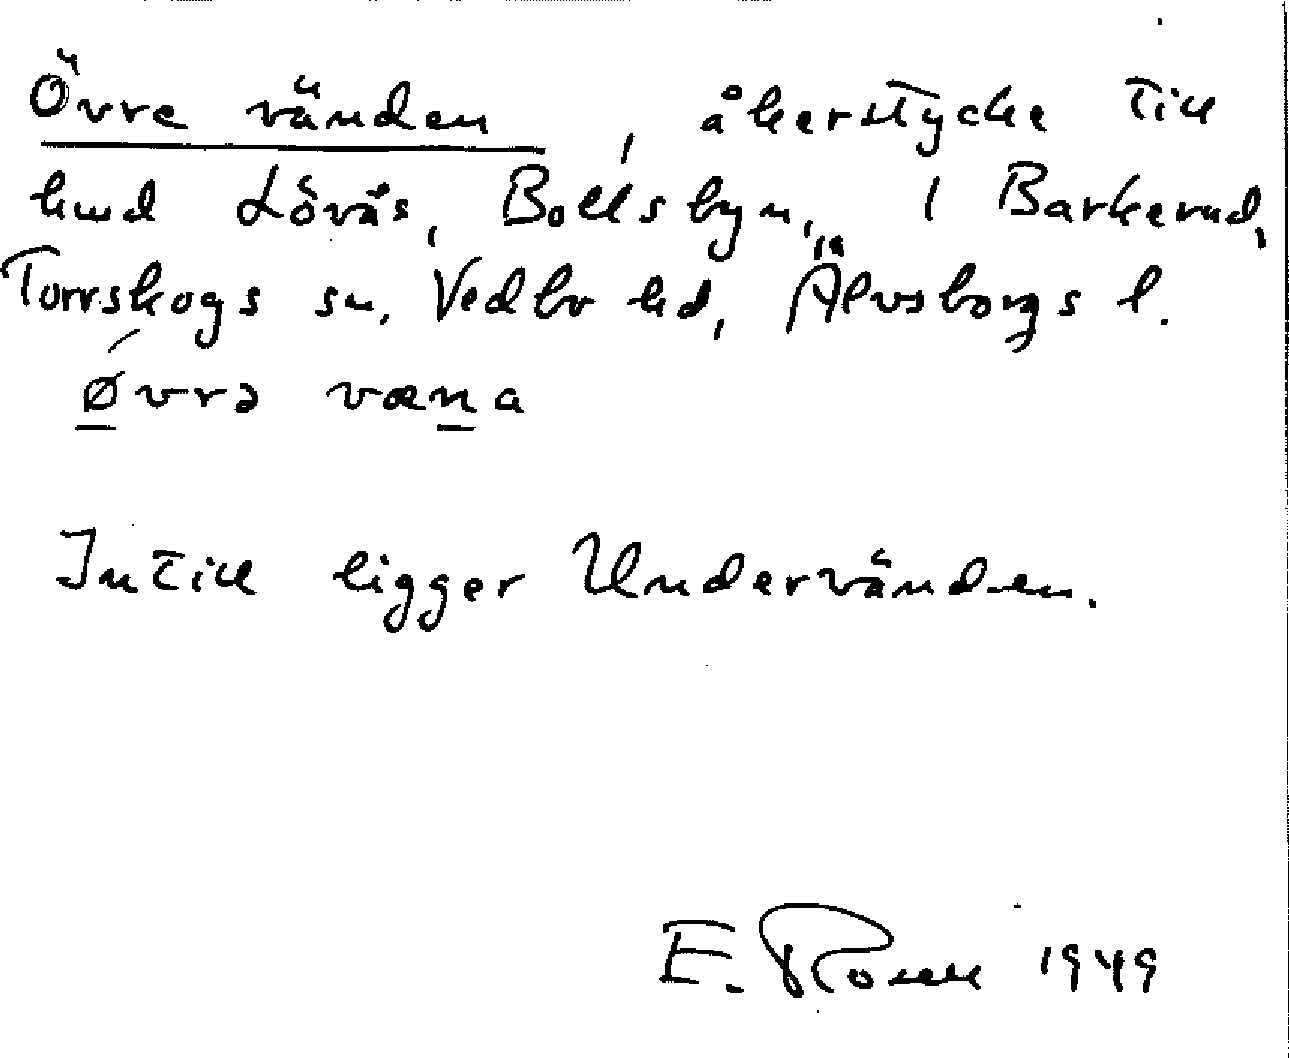 Övre vänden, åkerstycke till
hmd Lövås, Bollsbyn, 1 Barkerud,
Torrskogs sn, Vedbo hd, Älvsborgs l.
øvrə væna
Intill ligger Undervänden.
E. Rosell 1949